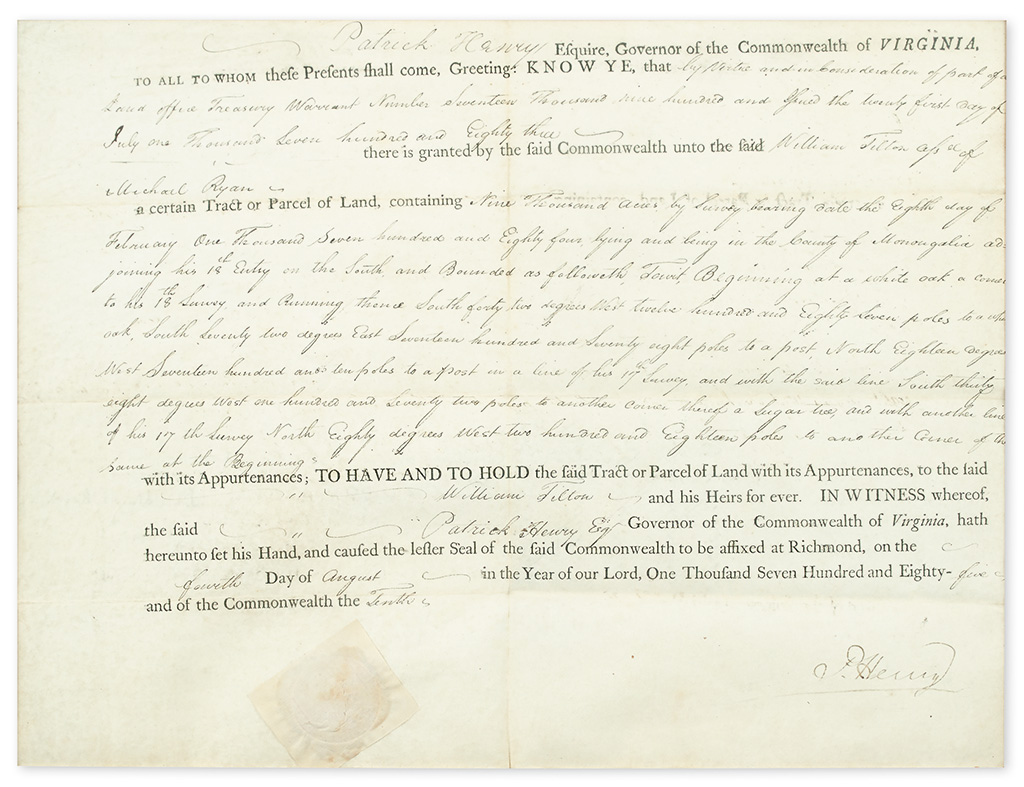 Patrick Henry Esquire, Governor of the Commonwealth of VIRGINIA,
TO ALL TO WHOM these Presents shall come, Greeting: KNOW YE, that by Virtue and in Consideration of part of a
Land office Treasury Warrant Number Seventeen Thousand nine hundred and Issued the twenty first day of
July one Thousand Seven hundred and Eighty three
there is granted by the said Commonwealth unto the said William Tilton assee of
Michael Ryan
a certain Tract or Parcel of Land, containing Nine Thousand acres by Survey bearing date the Eighth day of
February One Thousand Seven hundred and Eighty four, lying and being in the County of Monongalia ad-
joining his 18th Entry on the South, and Bounded as followeth, Towit, Beginning at a white oak a corner
to his 18th Survey, and Running thence South forty two degrees West twelve hundred and Eighty Seven poles to a white
oak, South Seventy two degrees East Seventeen hundred and Seventy eight poles to a post, North Eighteen degrees
West Seventeen hundred and ten poles to a post in a line of his 17th Survey, and with the said line South thirty
eight degrees West one hundred and Seventy two poles to another corner thereof a Sugar tree, and with another line
of his 17th Survey North Eighty degrees West two hundred and Eighteen poles to another Corner of the
same at the Beginning
with its Appurtenances; TO HAVE AND TO HOLD the said Tract or Parcel of Land with its Appurtenances, to the said
William Tilton and his Heirs for ever. IN WITNESS whereof,
the said Patrick Henry Esq Governor of the Commonwealth of Virginia, hath
hereunto set his Hand, and caused the lesser Seal of the said Commonwealth to be affixed at Richmond, on the
fourth Day of August in the Year of our Lord, One Thousand Seven Hundred and Eighty-five
and of the Commonwealth the Tenth
P. Henry